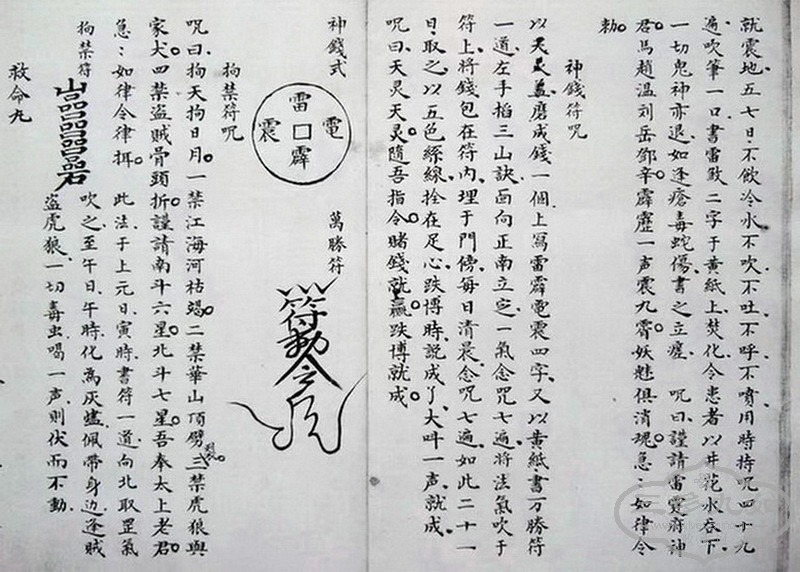 就震地五七日不飲冷水不吹不吐不呼不噴用時持咒四十九
遍吹筆一口書雷敕二字于黄紙上焚化令患者以井花水吞下
一切鬼神亦退如逢瘡毒蛇傷書之立瘥 咒曰謹請雷霆府神
君馬趙温刘岳鄧辛霹靂一声震九霄妖魅俱消魂急〻如律令
勅
神錢符咒
以天灵盖磨成錢一個上寫雷霹電震四字又以黄紙書万勝符
一道左手掐三山訣面向正南立定一氣念咒七遍將法氣吹于
符上將錢包在符内埋于門傍每日清晨念咒七遍如此二十一
日取之以五色絲線拴在足心跌博時説成了大叫一声就成
咒曰天灵天灵隨吾指令賭錢就贏跌博就成
神錢式
雷電
震霹
萬勝符
符動令
拘禁符咒
咒曰拘天拘日月一禁江海河枯竭二禁華山頂劈裂三禁虎狼與
家犬四禁盗賊骨頭折謹請南斗六星北斗七星吾奉太上老君
急〻如律令律揖
此法于上元日寅時書符一道向北取罡氣
拘禁符
吹之至午日午時化為灰爐佩带身邊逢賊
盗虎狼一切毒虫喝一声則伏而不動
救命九